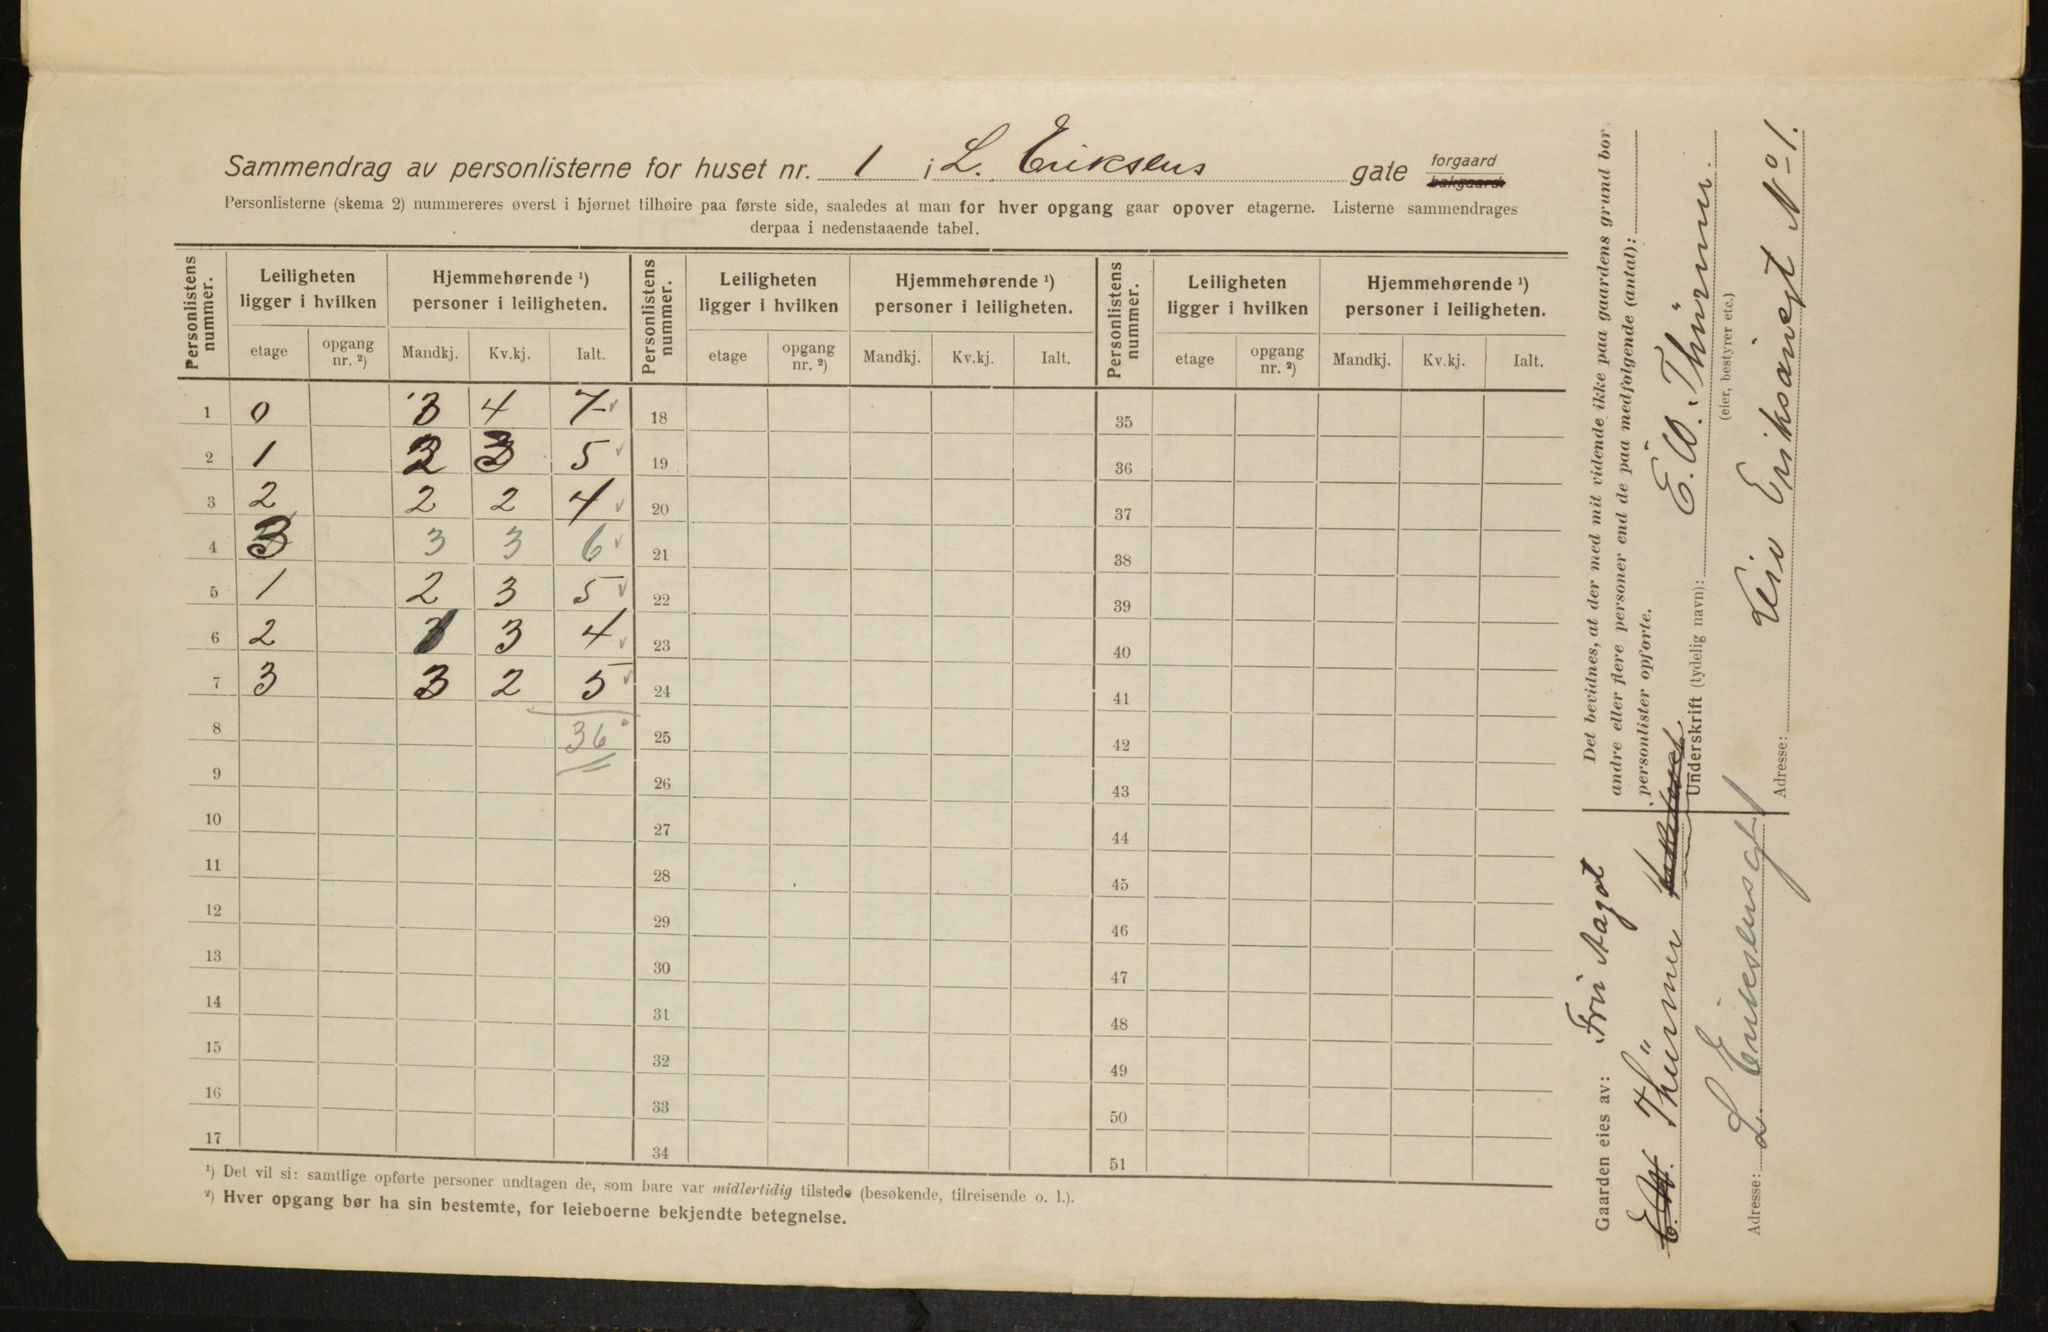 Sammendrag av personlisterne for huset nr. 1 i L. Eriksens gate forgaard bakgaard.
Personlisterne (skema 2) nummereres øverst i hjørnet tilhøire paa første side, saaledes at man for hver opgang gaar opover etagerne. Listerne sammendrages
derpaa i nedenstaaende tabel.
Personlistens nummer. Leiligheten ligger i hvilken Hjemmehørende ¹) personer i leiligheten. Personlistens nummer. Leiligheten ligger i hvilken Hjemmehørende ¹) personer i leiligheten. Personlistens nummer. Leiligheten ligger i hvilken Hjemmehørende ¹) personer i leiligheten.
etage opgang nr. ²) Mandkj. Kv.kj. Ialt. etage opgang nr. ²) Mandkj. Kv.kj. Ialt. etage opgang nr. ²) Mandkj. Kv.kj. Ialt.
1 0 3 4 7 18 35
2 1 2 3 5 19 36
3 2 2 2 4 20 37
4 3 3 3 6 21 38
5 1 2 3 5 22 39
6 2 1 3 4 23 40
7 3 3 2 5 24 41
8 36 25 42
9 26 43
10 27 44
11 28 45
12 29 46
13 30 47
14 31 48
15 32 49
16 33 50
17 34 51
¹) Det vil si: samtlige opførte personer undtagen de, som bare var midlertidig tilstede (besøkende, tilreisende o. l.).
²) Hver opgang bør ha sin bestemte, for leieboerne bekjendte betegnelse.
Det bevidnes, at der med mit vidende ikke paa gaardens grund bor
andre eller flere personer end de paa medfølgende (antal):
personlister opførte.
Underskrift (tydelig navn): E. W. Thürmer.
(eier, bestyrer etc.)
Adresse: Leiv Eriksönsgt No 1.
Gaarden eies av: Fru Aagot
E.W. Thürmer
Adresse: L Eriksensgt 1